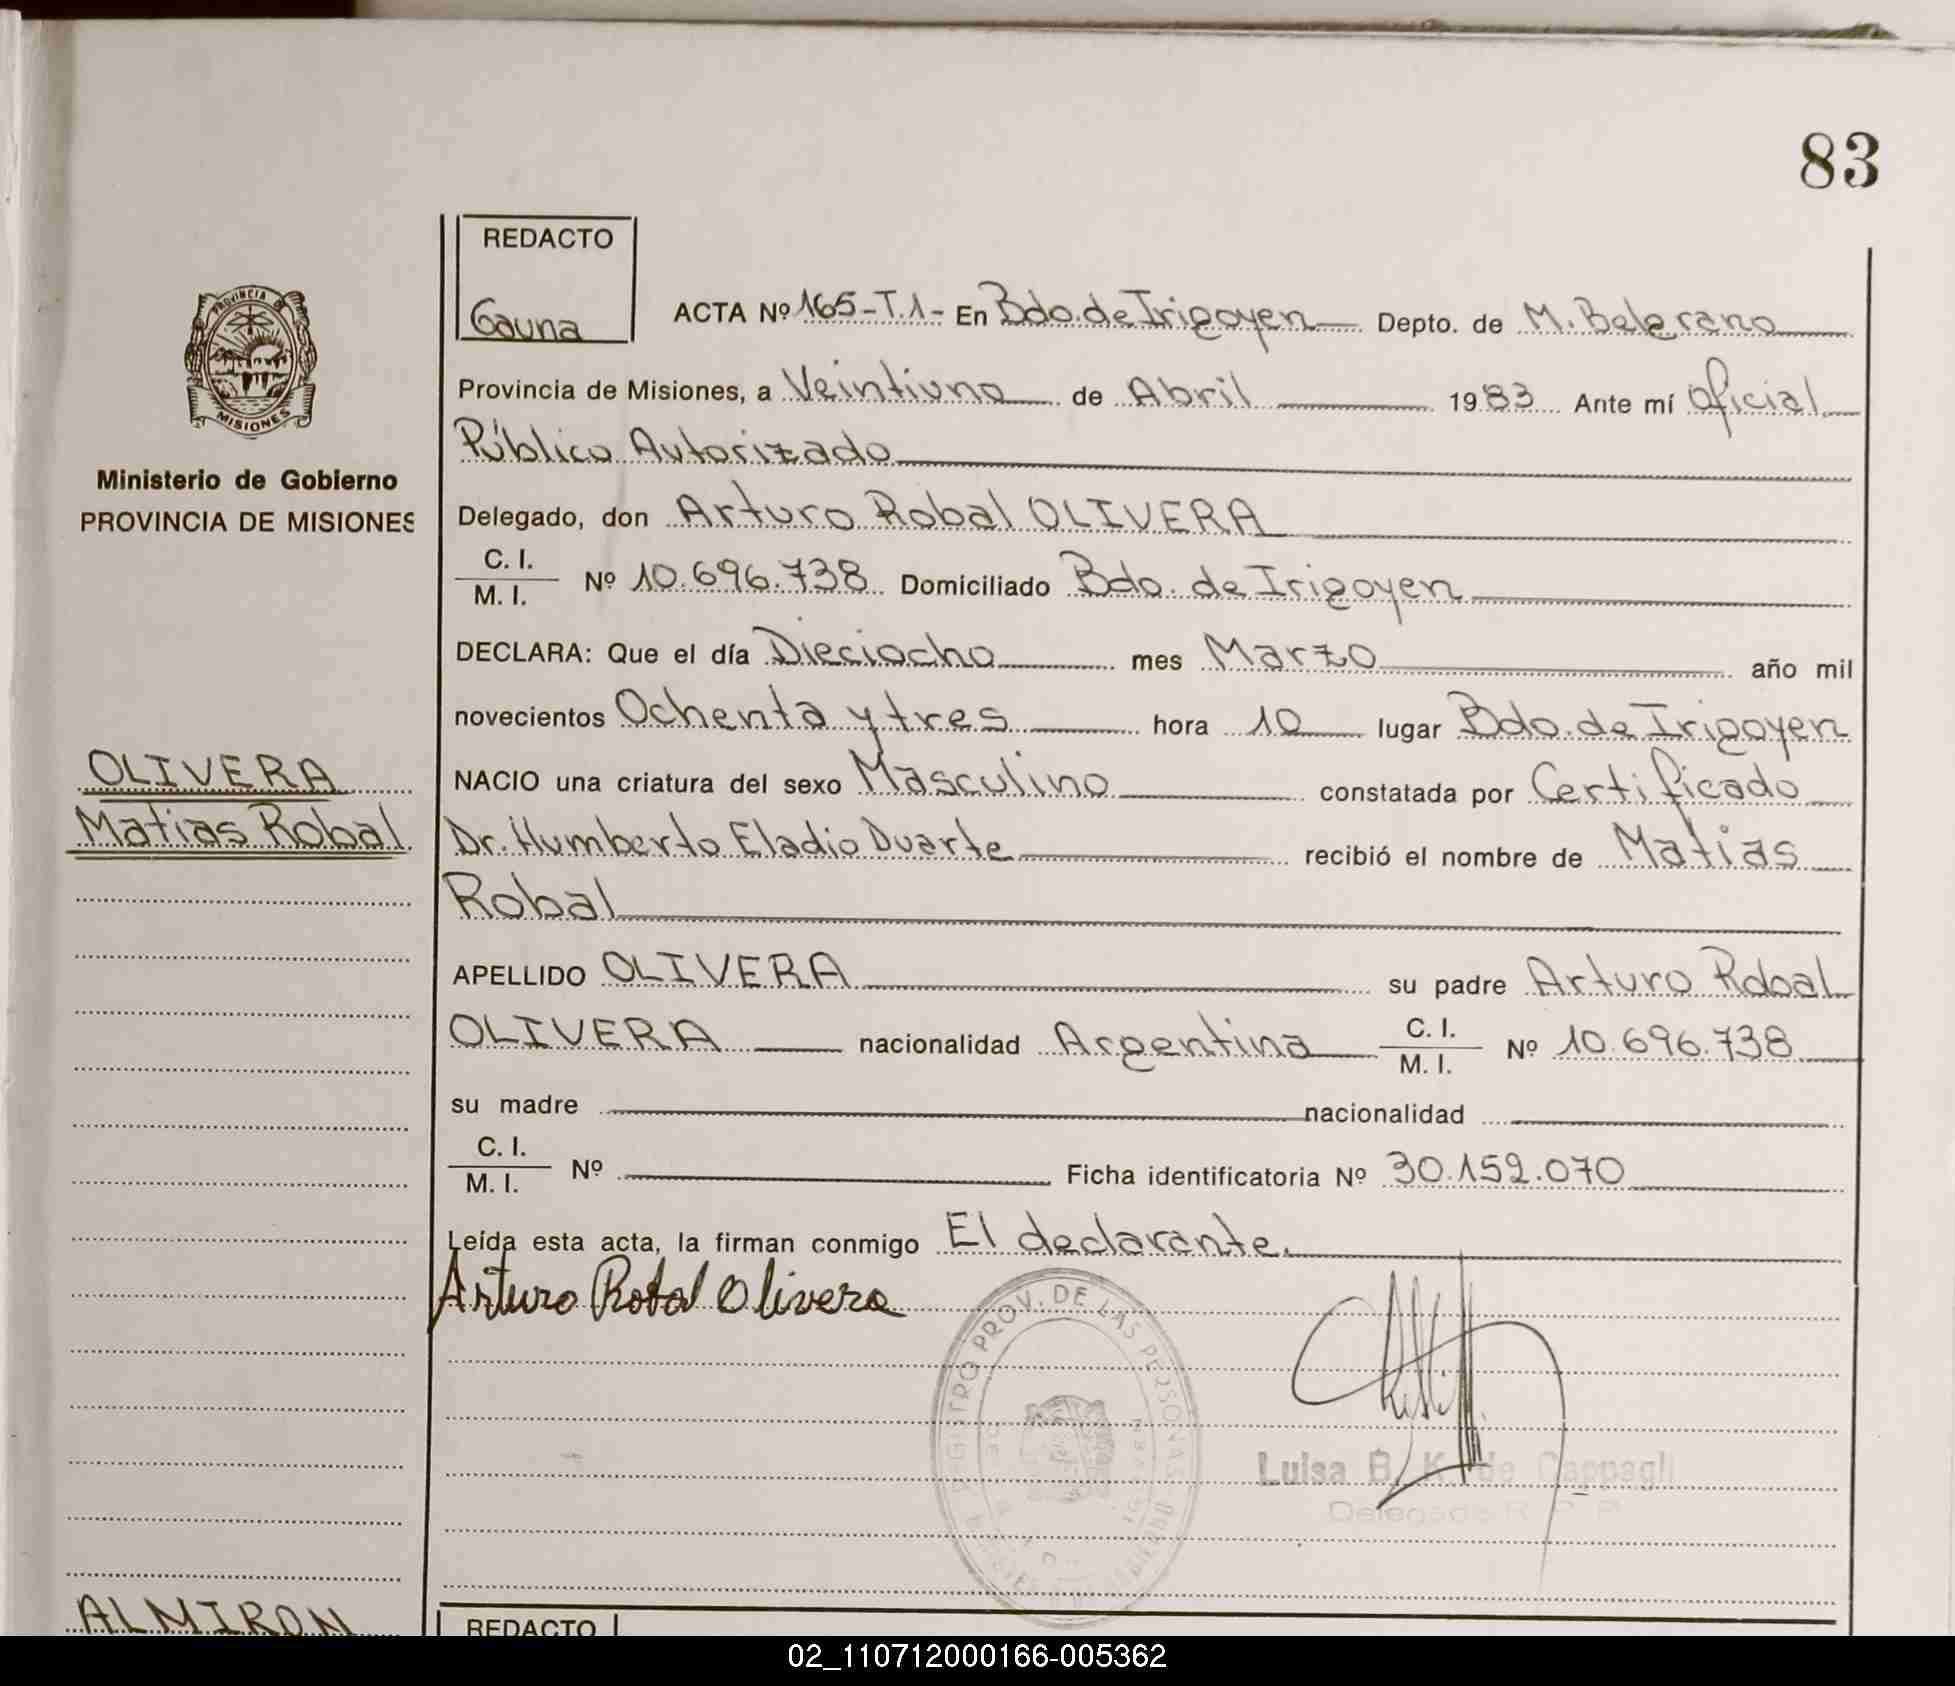 83
REDACTO
Gauna
ACTA Nº 165-T.1- En Bdo. de Irigoyen Depto. de M. Belgrano
Provincia de Misiones, a Veintiuno de Abril 1983 Ante mí Oficial
Público Autorizado
Delegado, don Arturo Robal OLIVERA
C. I.
M. I. Nº 10.696.738 Domiciliado Bdo. de Irigoyen
DECLARA: Que el día Dieciocho mes Marzo año mil
novecientos Ochenta y tres hora 10 lugar Bdo. de Irigoyen
NACIO una criatura del sexo Masculino constatada por Certificado
Dr. Humberto Eladio Duarte recibió el nombre de Matias
Robal
APELLIDO OLIVERA su padre Arturo Robal
OLIVERA nacionalidad Argentina C. I. M. I. Nº 10.696.738
su madre nacionalidad
C. I.
M. I. Nº Ficha identificatoria Nº 30.152.070
Leída esta acta, la firman conmigo El declarante.
Arturo Robal Olivera
REGISTRO PROV. DE LAS PERSONAS
Luisa B. K. de Cappagli
Delegada R. P. P.
PROVINCIA DE
MISIONES
Ministerio de Gobierno
PROVINCIA DE MISIONES
OLIVERA
Matias Robal
ALMIRON
REDACTO
02_110712000166-005362